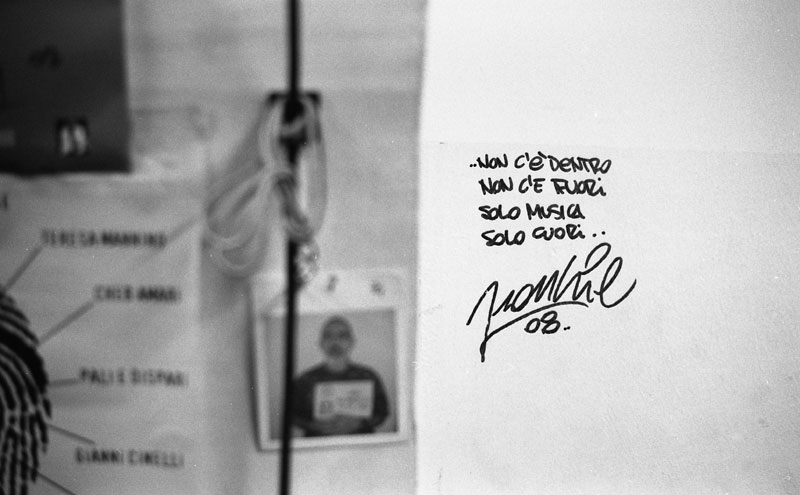 TERESA MANNINO
PALI E DISPARI
GIANNI CINELLI
..NON C'È DENTRO
NON C'E FUORI
SOLO MUSICA
SOLO CUORI..
08.